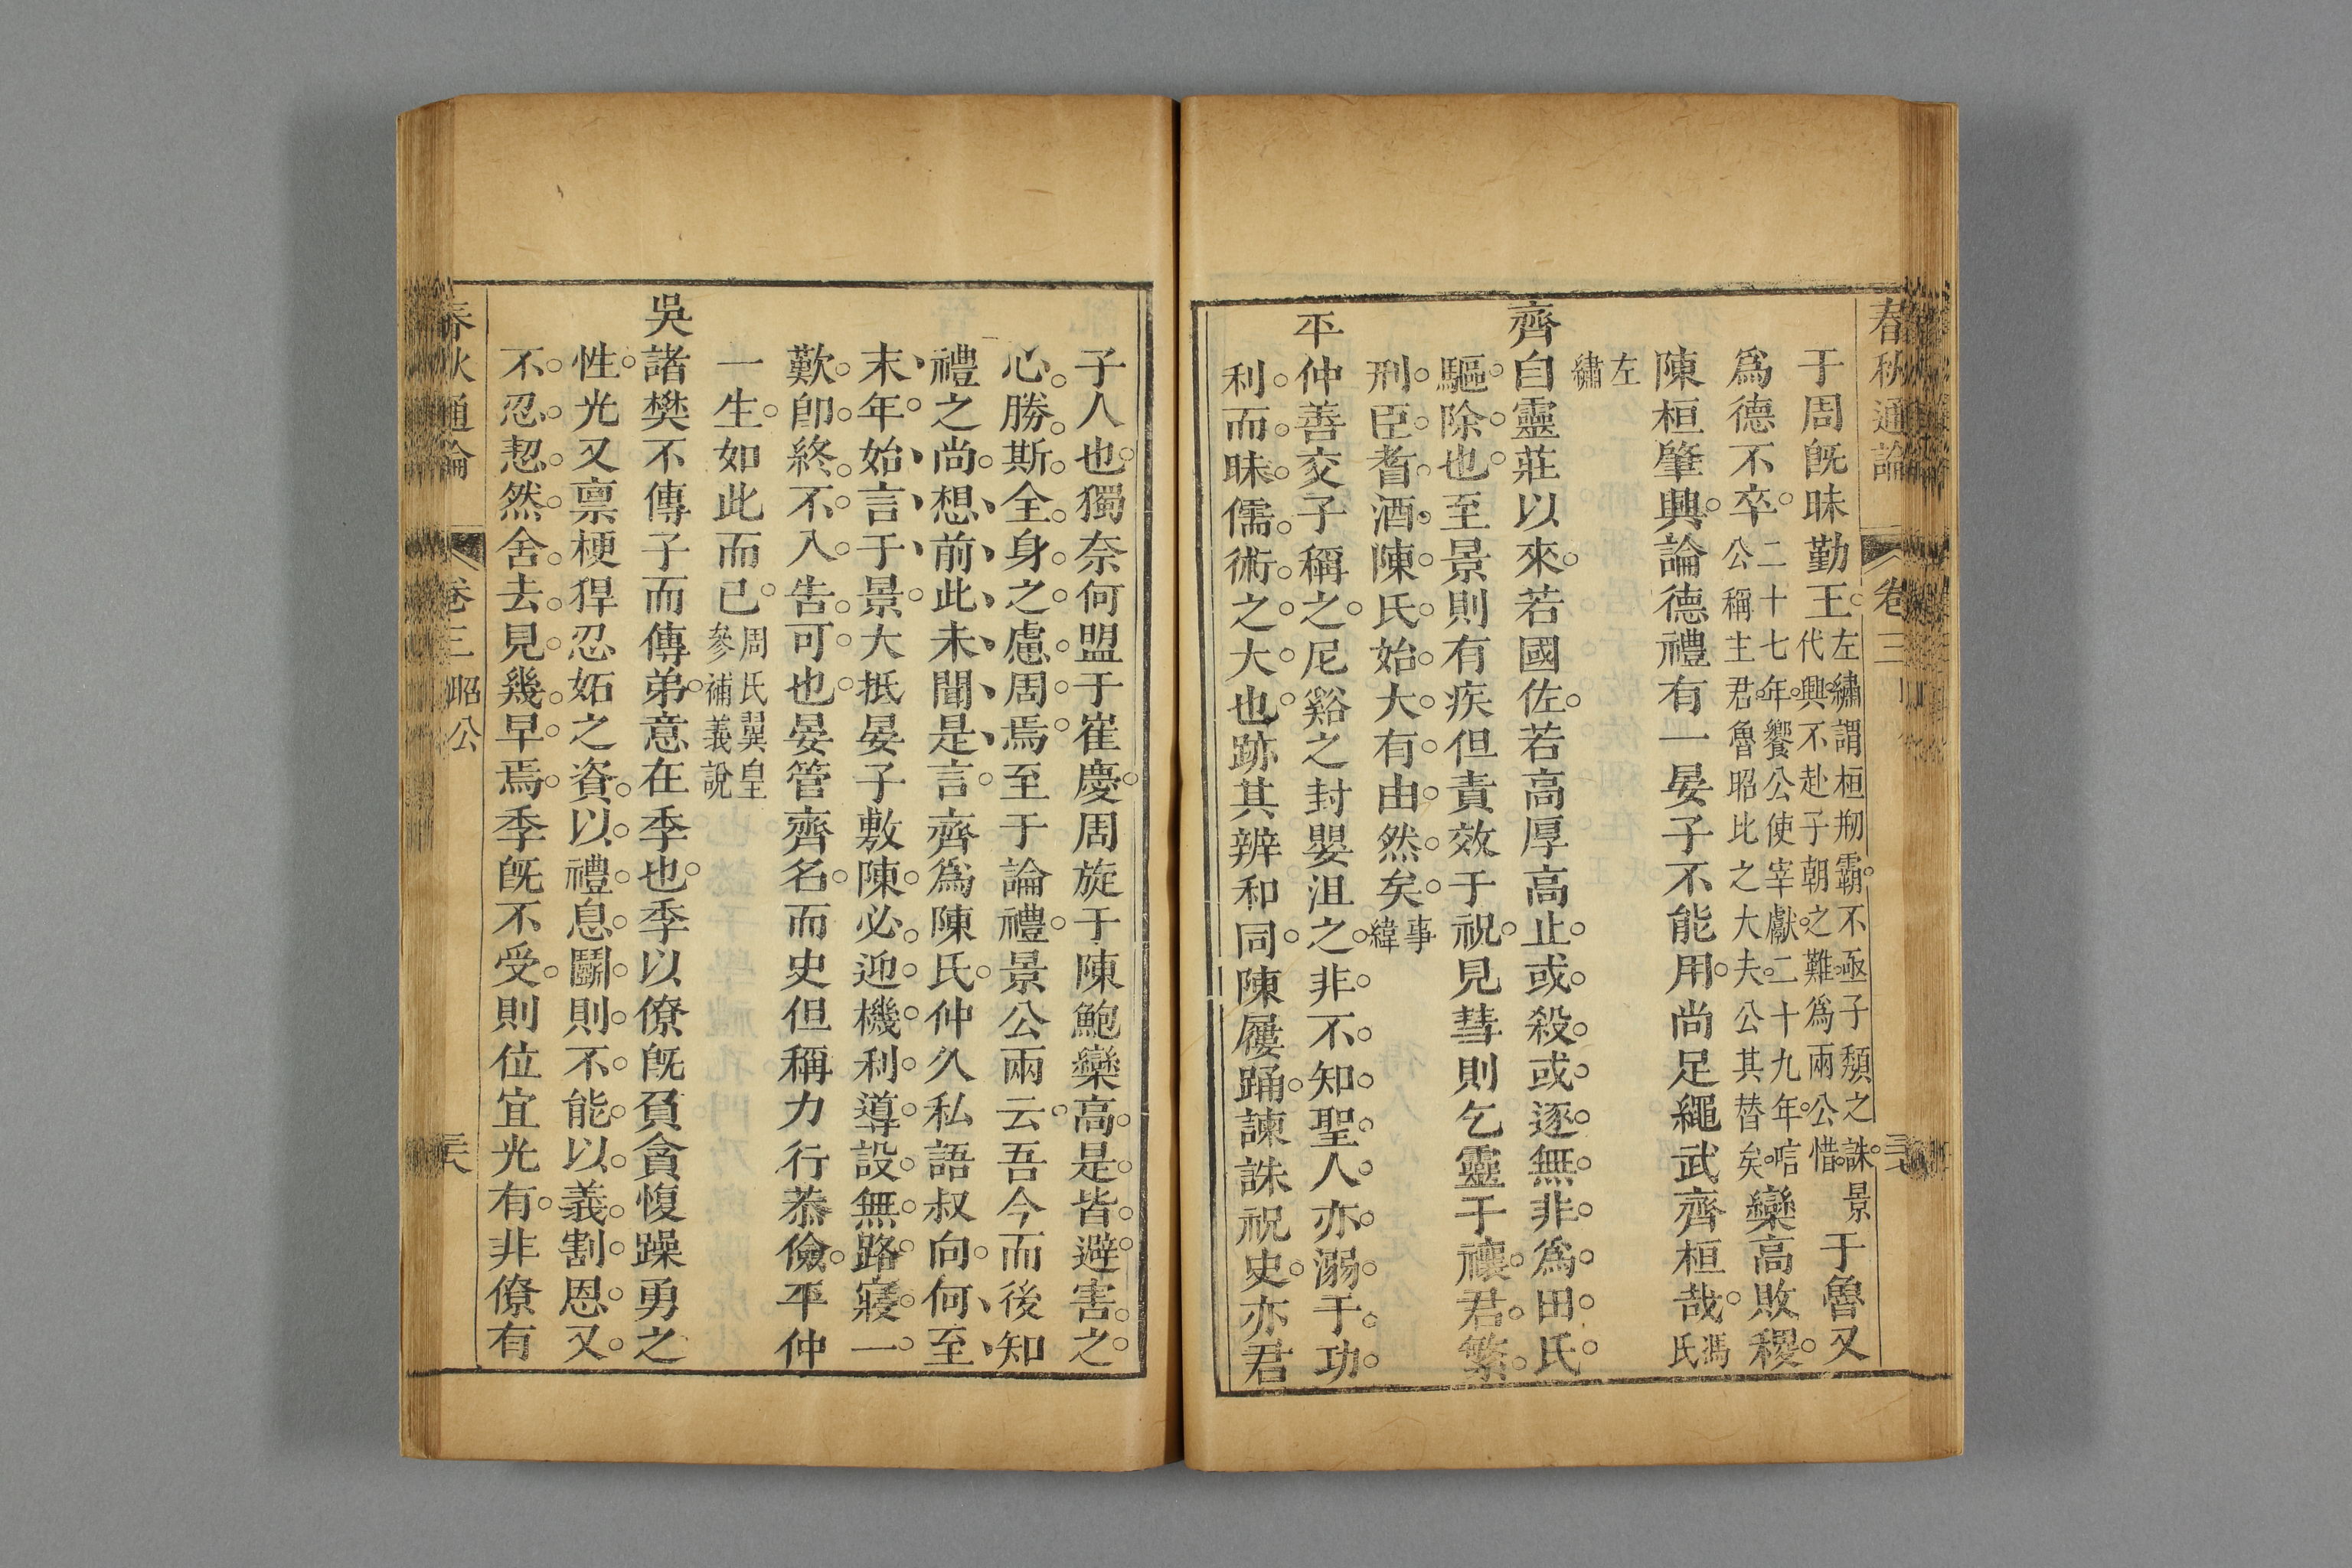 春秋通論 卷三
于周旣昧勤王左繡謂桓剏霸不亟子頹之誅景代興不赴子朝之難爲兩公惜于魯又
爲德不卒二十七年饗公使宰獻二十九年唁公稱主君魯昭比之大夫公其替矣欒高敗稷
陳桓肇興論德禮有一晏子不能用尚足繩武齊桓哉馮氏
左繡
齊自靈莊以來若國佐若高厚高止或殺或逐無非爲田氏
驅除也至景則有疾但責效于祝見彗則乞靈于禳君繁
刑臣耆酒陳氏始大有由然矣事緯
平仲善交子稱之尼谿之封嬰沮之非不知聖人亦溺于功
利而昧儒術之大也跡其辨和同陳屨踊諫誅祝史亦君
子人也獨奈何盟于崔慶周旋于陳鮑欒高是皆避害之
心勝斯全身之慮周焉至于論禮景公兩云吾今而後知
禮之尚想前此未聞是言齊爲陳氏仲久私語叔向何至
末年始言于景大抵晏子敷陳必迎機利導設無路寢一
歎卽終不入告可也晏管齊名而史但稱力行恭儉平仲
一生如此而已周氏翼皇參補義說
吳諸樊不傳子而傳弟意在季也季以僚旣負貪愎躁勇之
性光又禀梗猂忍妬之資以禮息鬭則不能以義割恩又
不忍恝然舍去見幾早焉季旣不受則位宜光有非僚有
春秋通論 卷三 昭公